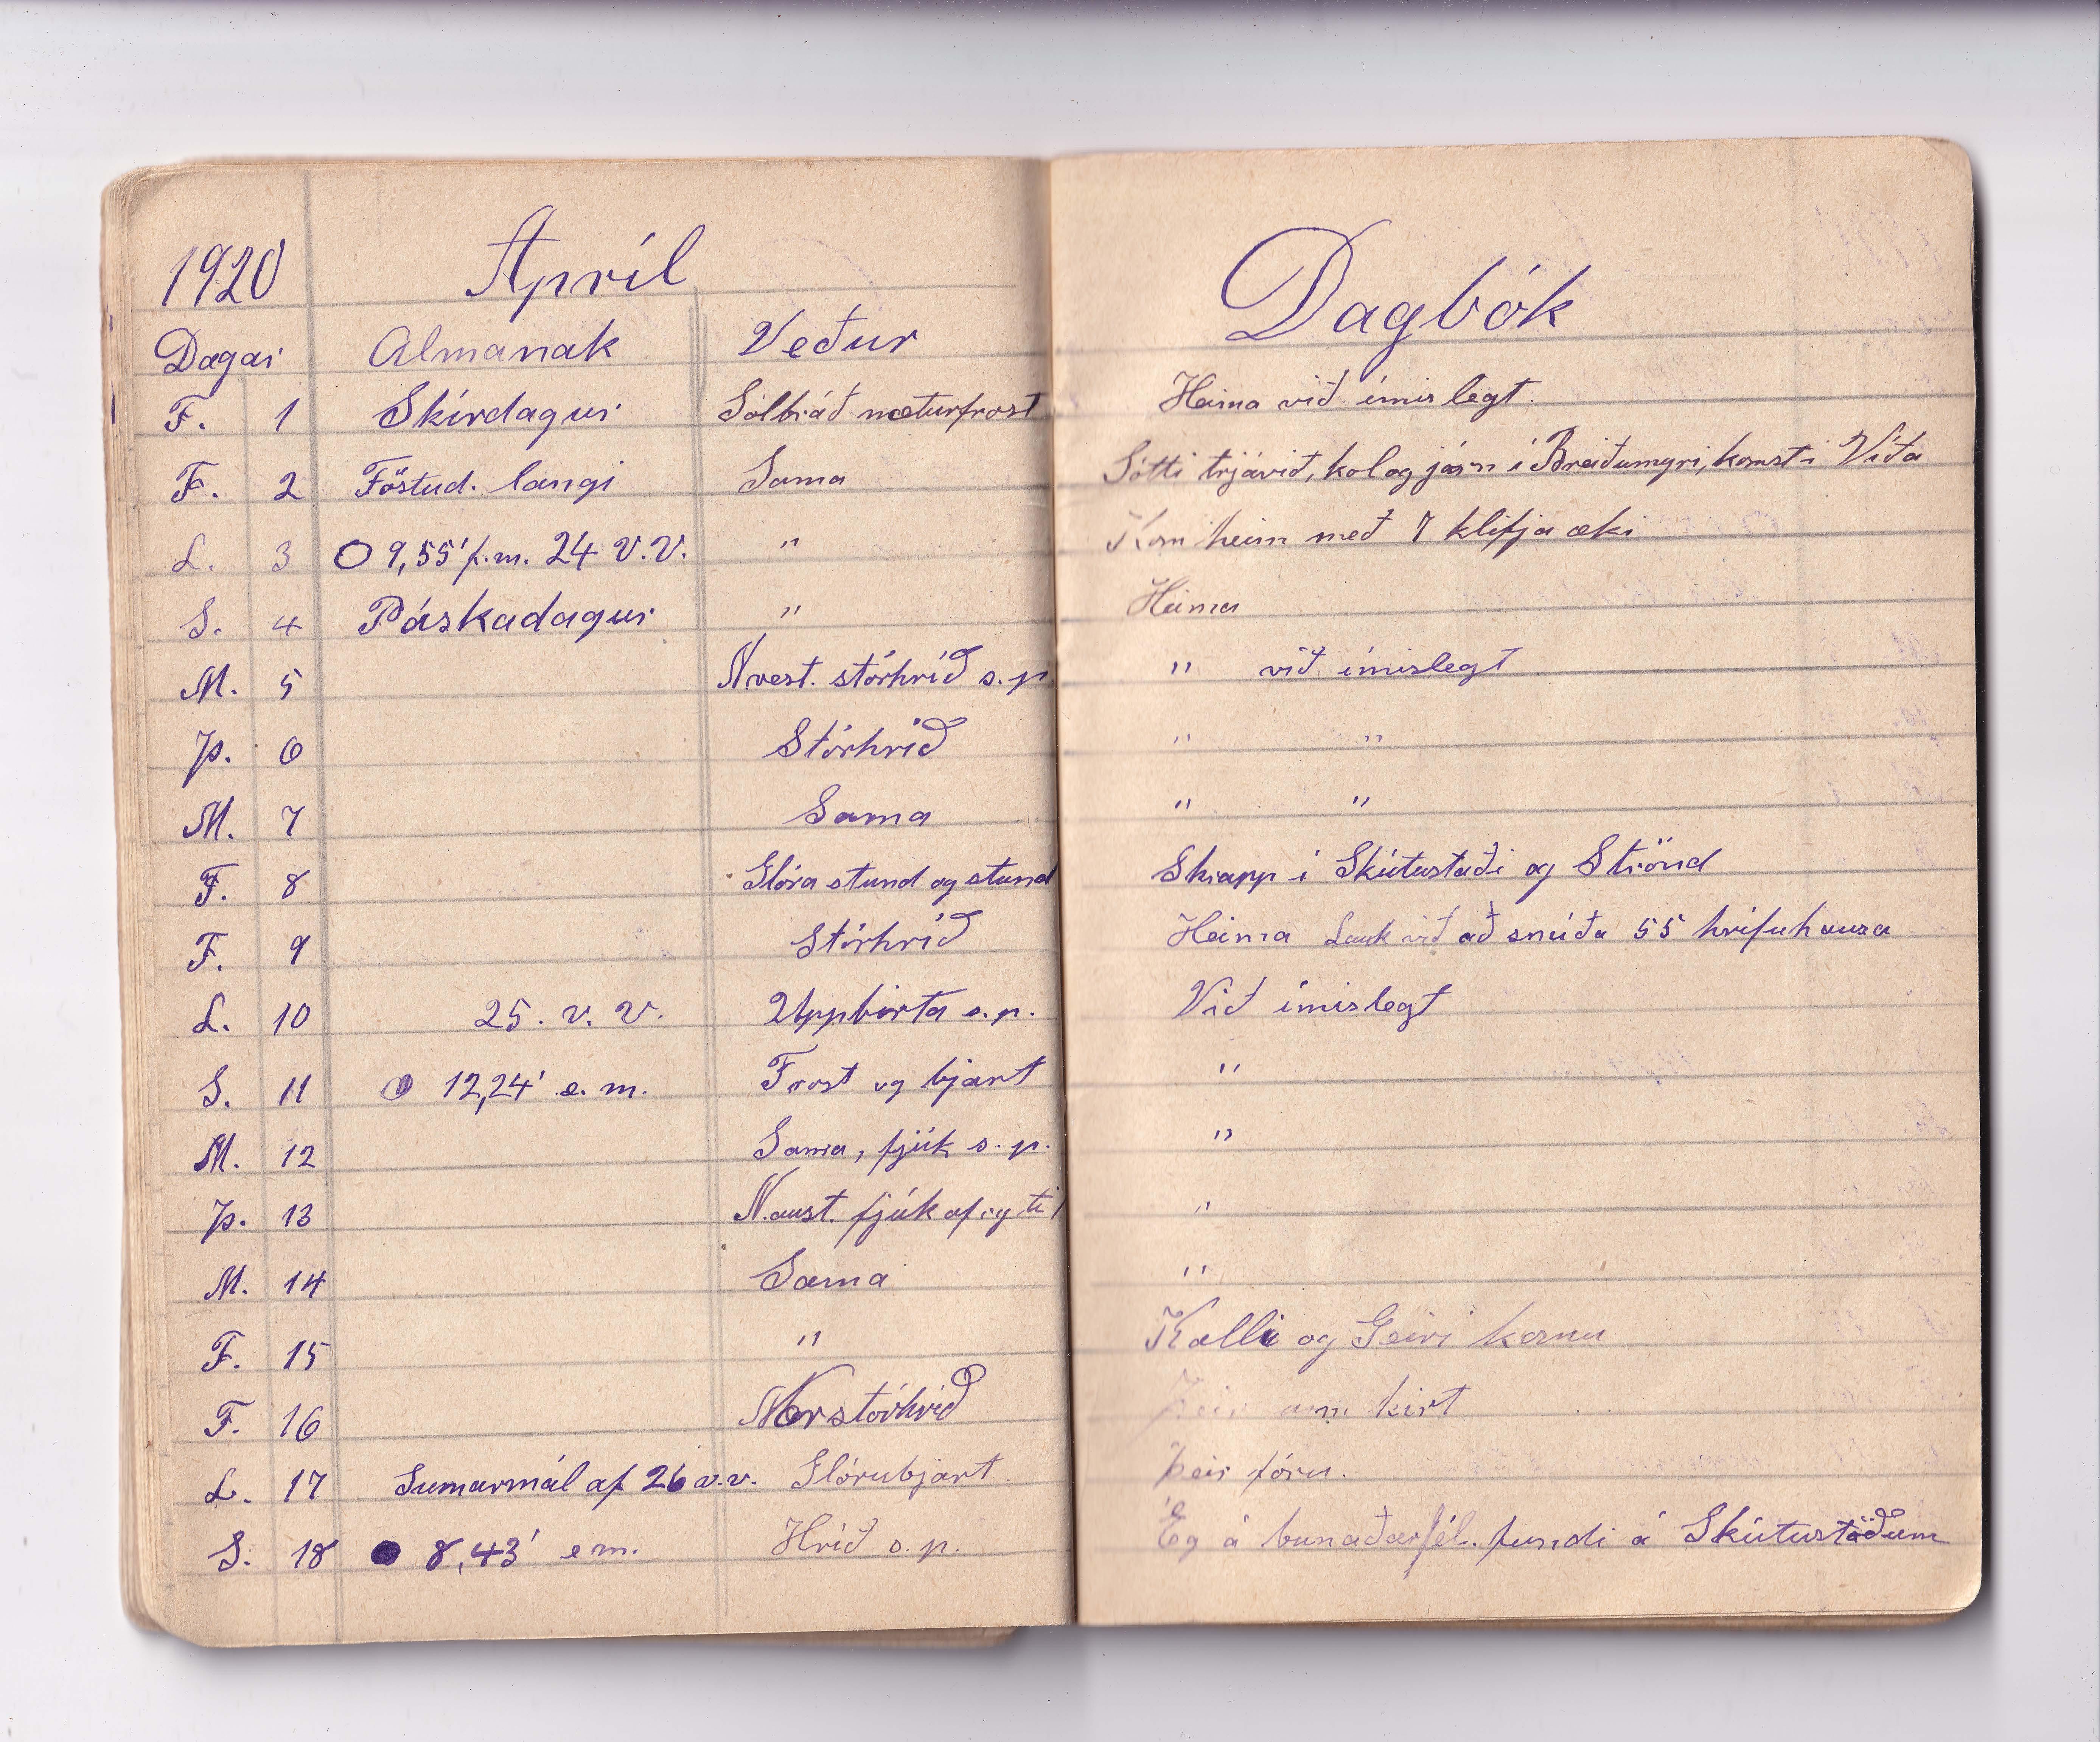 1920 Apríl
Dagar Almanak Veður
F. 1 Skírdagur Sólbráð næturfrost
F. 2 Föstud. langi Sama
L. 3 9,55' f.m. 24 V.V. "
S. 4 Páskadagur "
M. 5 N vest. stórhríð s.p.
Þ. 6 Stórhríð
M. 7 Sama
F. 8 Glóra stund og stund
F. 9 Stórhríð
L. 10 25. v. v. Uppbirta s.p.
S. 11 12,24' e. m. Frost og bjart
M. 12 Sama, fjúk s. p.
Þ. 13 N.aust. fjúk af og til
M. 14 Sama
F. 15 "
F. 16 Nor stórhríð
L. 17 Sumarmál af 26 v.v. Glórubjart
S. 18 8,43' em. Hríð s.p.
Dagbók
Heima við ímislegt.
Sótti trjávið, kol og járn í Breiðumýri, komst í Víða
Kom heim með 7 klifja æki
Heima
" við ímislegt
" "
" "
Skrapp í Skútustaði og Strönd
Heima Lauk við að smíða 55 hrífuhausa
Við ímislegt
"
"
"
"
Kalli og Geiri komu
Þeir um kirt
Þeir fóru.
Ég á bunaðarfél. fundi á Skútustöðum